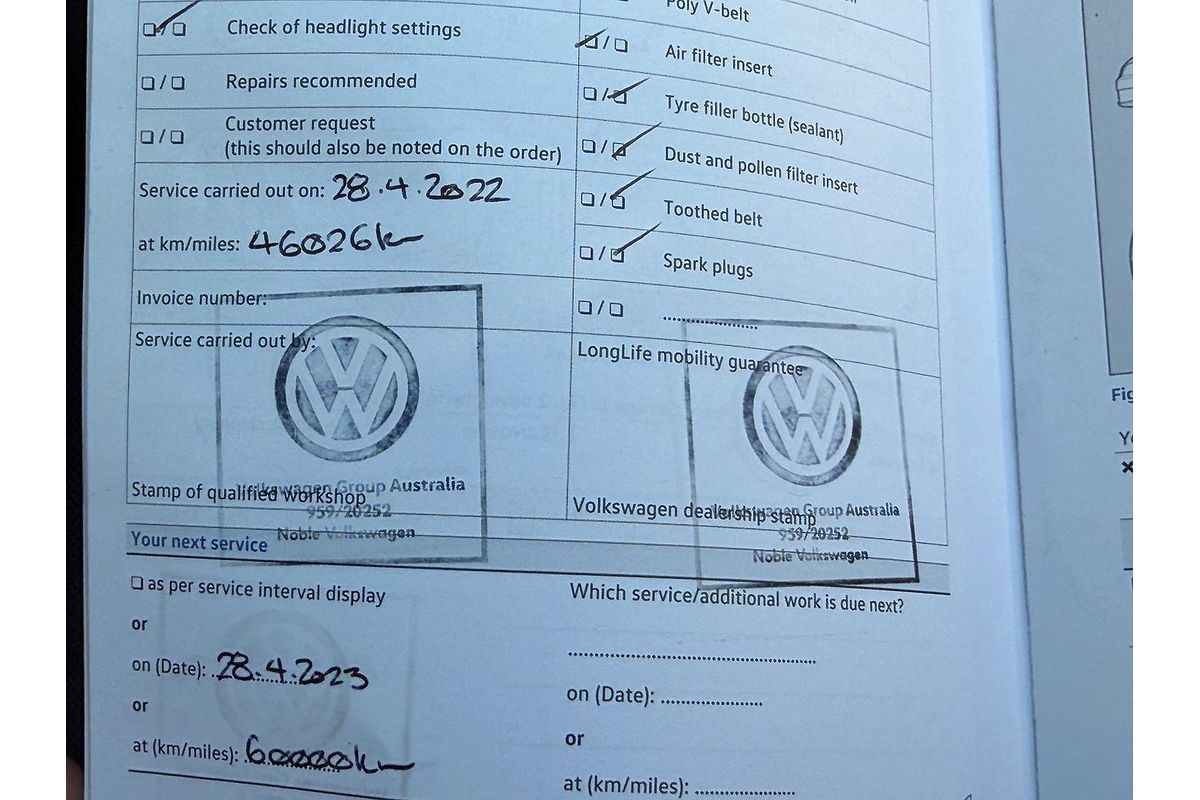 Check of headlight settings
Repairs recommended
Customer request
(this should also be noted on the order)
Service carried out on: 28.4.2022
at km/miles: 46026km
Invoice number:
Service carried out by:
Stamp of qualified workshop
Volkswagen Group Australia
959/20252
Noble Volkswagen
Poly V-belt
Air filter insert
Tyre filler bottle (sealant)
Dust and pollen filter insert
Toothed belt
Spark plugs
LongLife mobility guarantee
Volkswagen dealership stamp
Volkswagen Group Australia
959/20252
Noble Volkswagen
Your next service
as per service interval display
or
on (Date): 28.4.2023
or
at (km/miles): 60000km
Which service/additional work is due next?
on (Date):
or
at (km/miles):
Fig